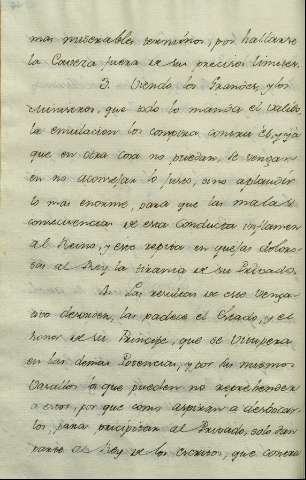 mas miserables terminos, por hallarse
la Cabeza, fuera de sus precisos limites.
3. Viendo los Grandes, y los
Ministros, que todo lo manda el valido,
la emulacion los conspira contra él, y ya
que en otra cosa no puedan, se vengan
en no aconsejar lo justo, sino aplaudir
lo mas enorme, para que las malas
consecuencias de esta conducta inflamen
al Reino, y este repita en quejas doloro-
sas al Rey la tirania de su Privado.
4. Las resultas de este venga-
tivo desorden, las padece el Estado, y el
honor de su Principe, que se vitupera
en las demas Potencias, y por sus mismos
Vasallos los que pueden no reprehenden
a estos, por que como aspiran a desbocar-
los, para precipitar al Privado, solo dan
parte al Rey de los escritos, que contra